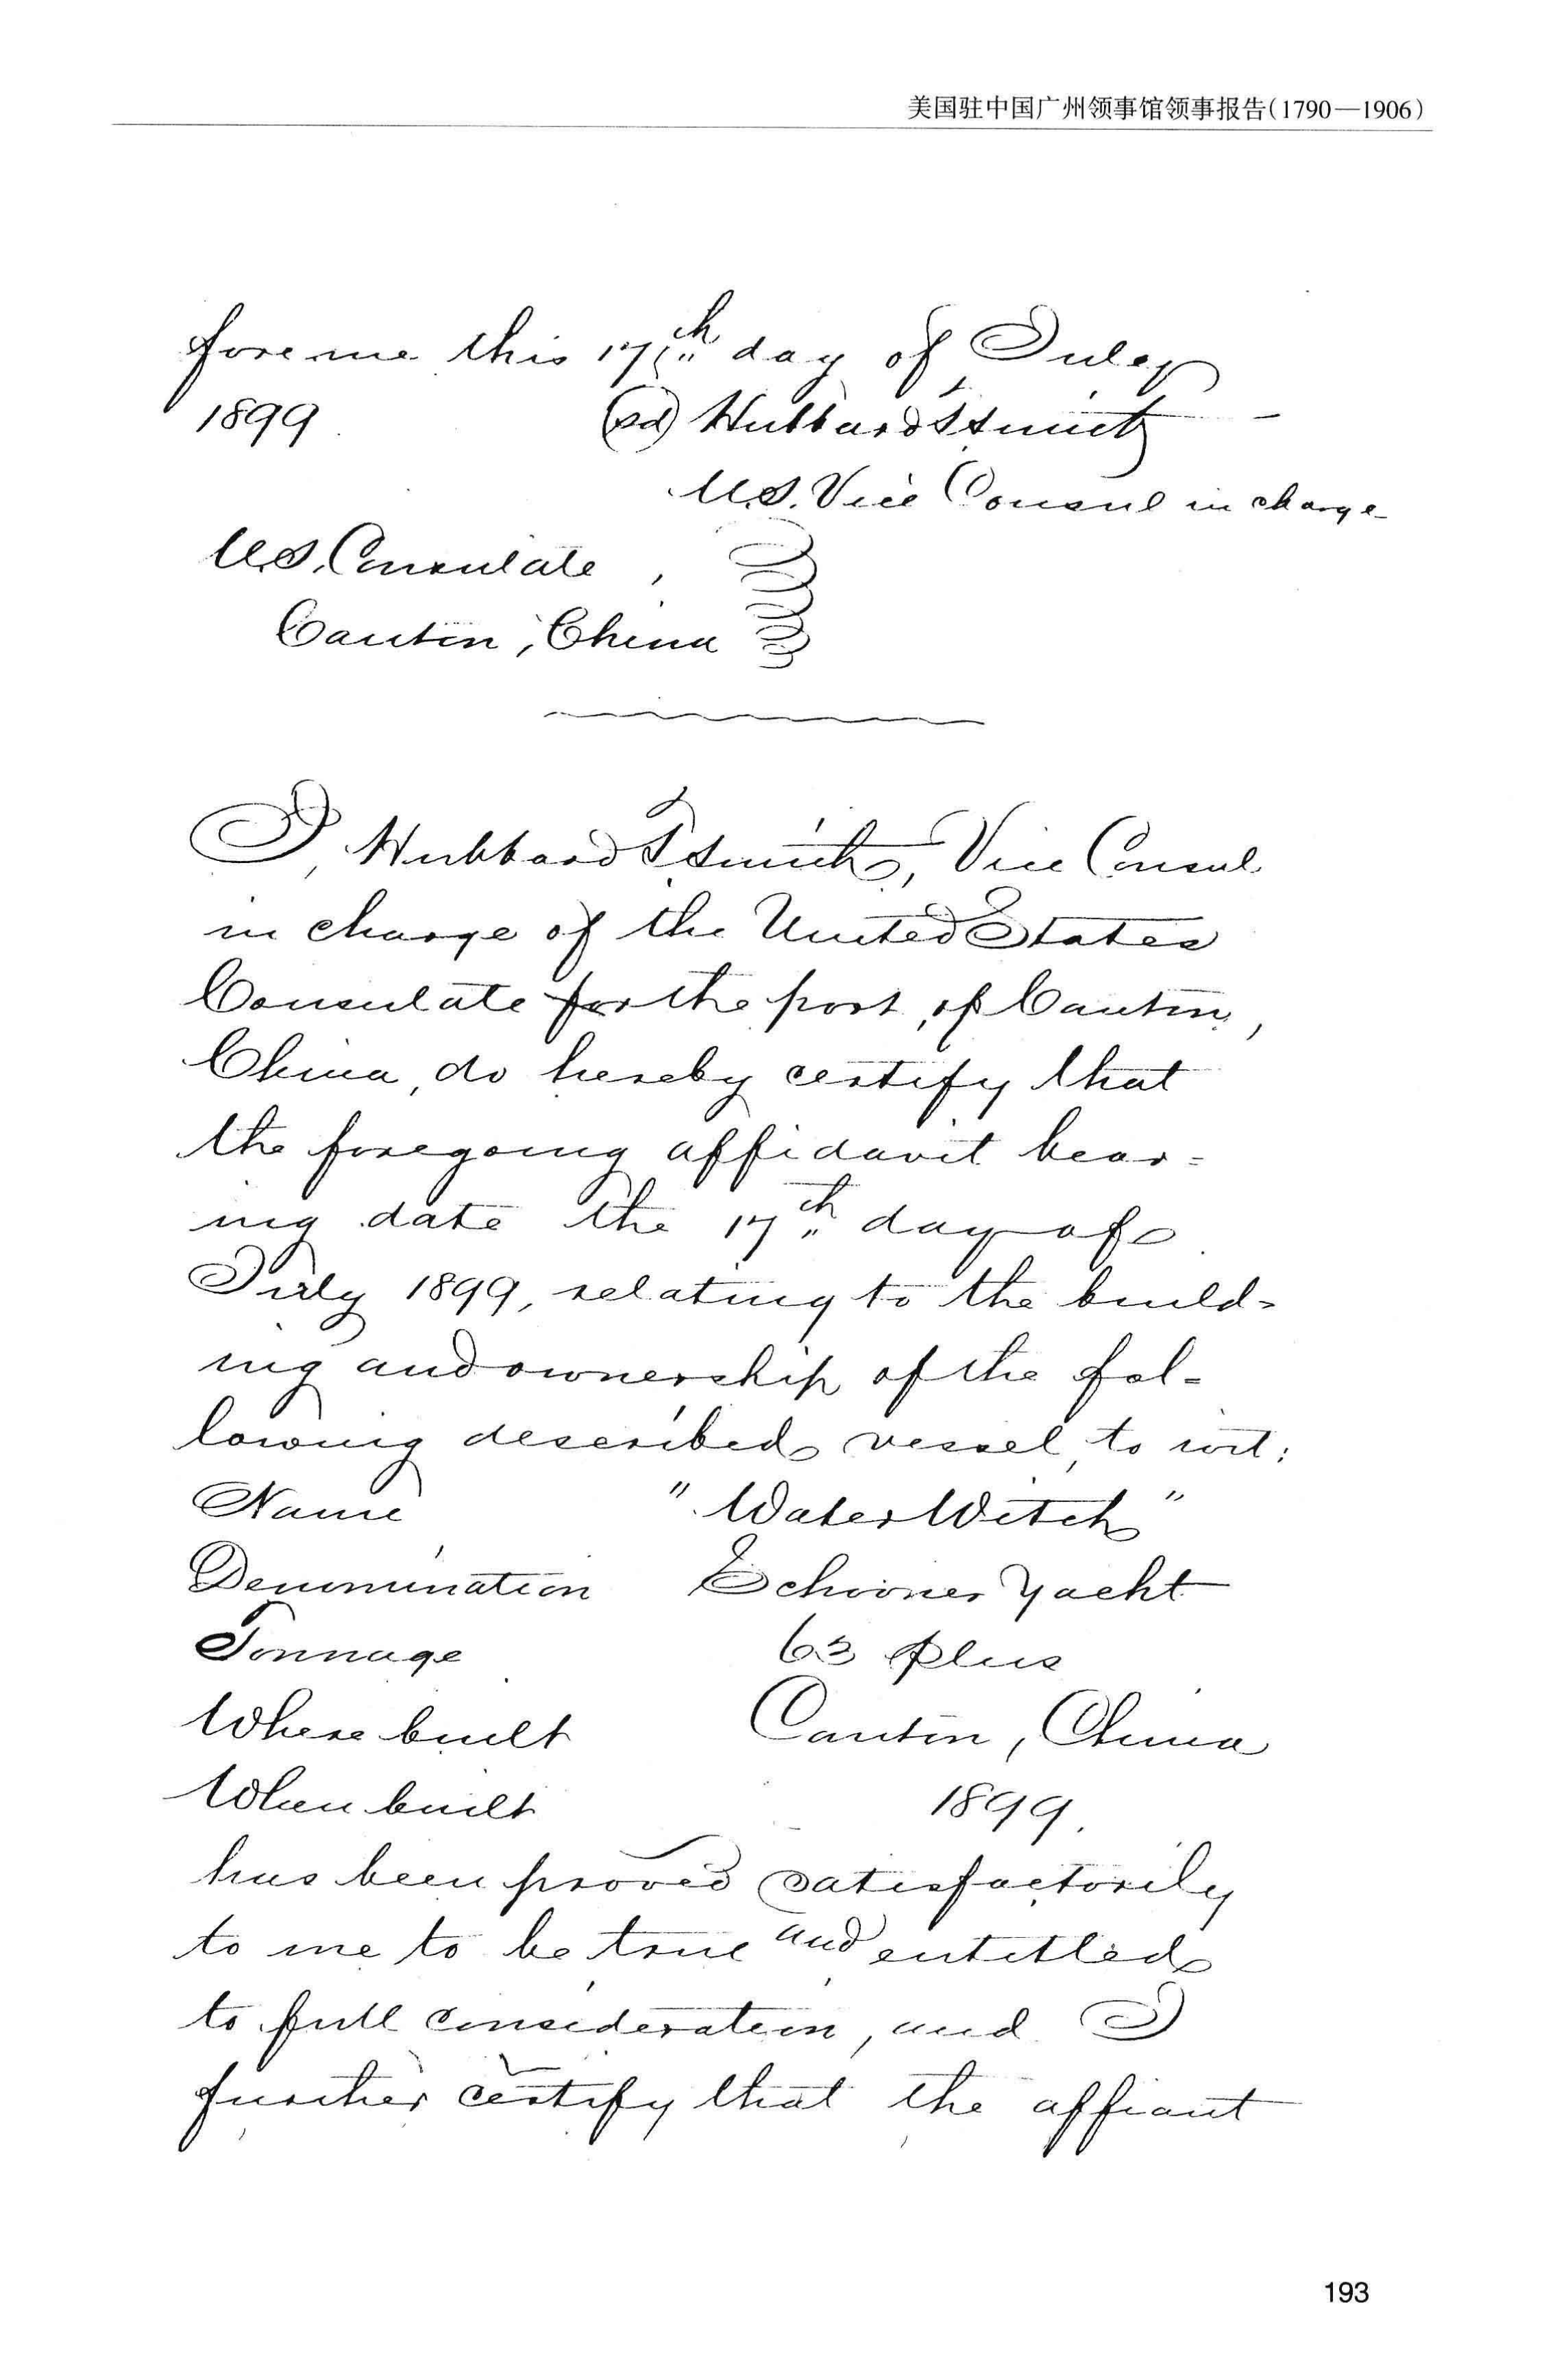 美国驻中国广州领事馆领事报告(1790—1906)
fore me this 17th day of July
1899 (sd) Hubbard T. Smith
U.S. Vice Consul in charge
U.S. Consulate,
Canton, China
I, Hubbard T. Smith, Vice Consul
in charge of the United States
Consulate for the port of Canton,
China, do hereby certify that
the foregoing affidavit bear=
ing date the 17th day of
July 1899, relating to the build=
ing and ownership of the fol=
lowing described vessel, to wit:
Name "Water Witch"
Denomination Schooner Yacht
Tonnage 63 plus
Where built Canton, China
When built 1899.
has been proved satisfactorily
to me to be true and entitled
to full consideration, and I
further certify that the affiant
193